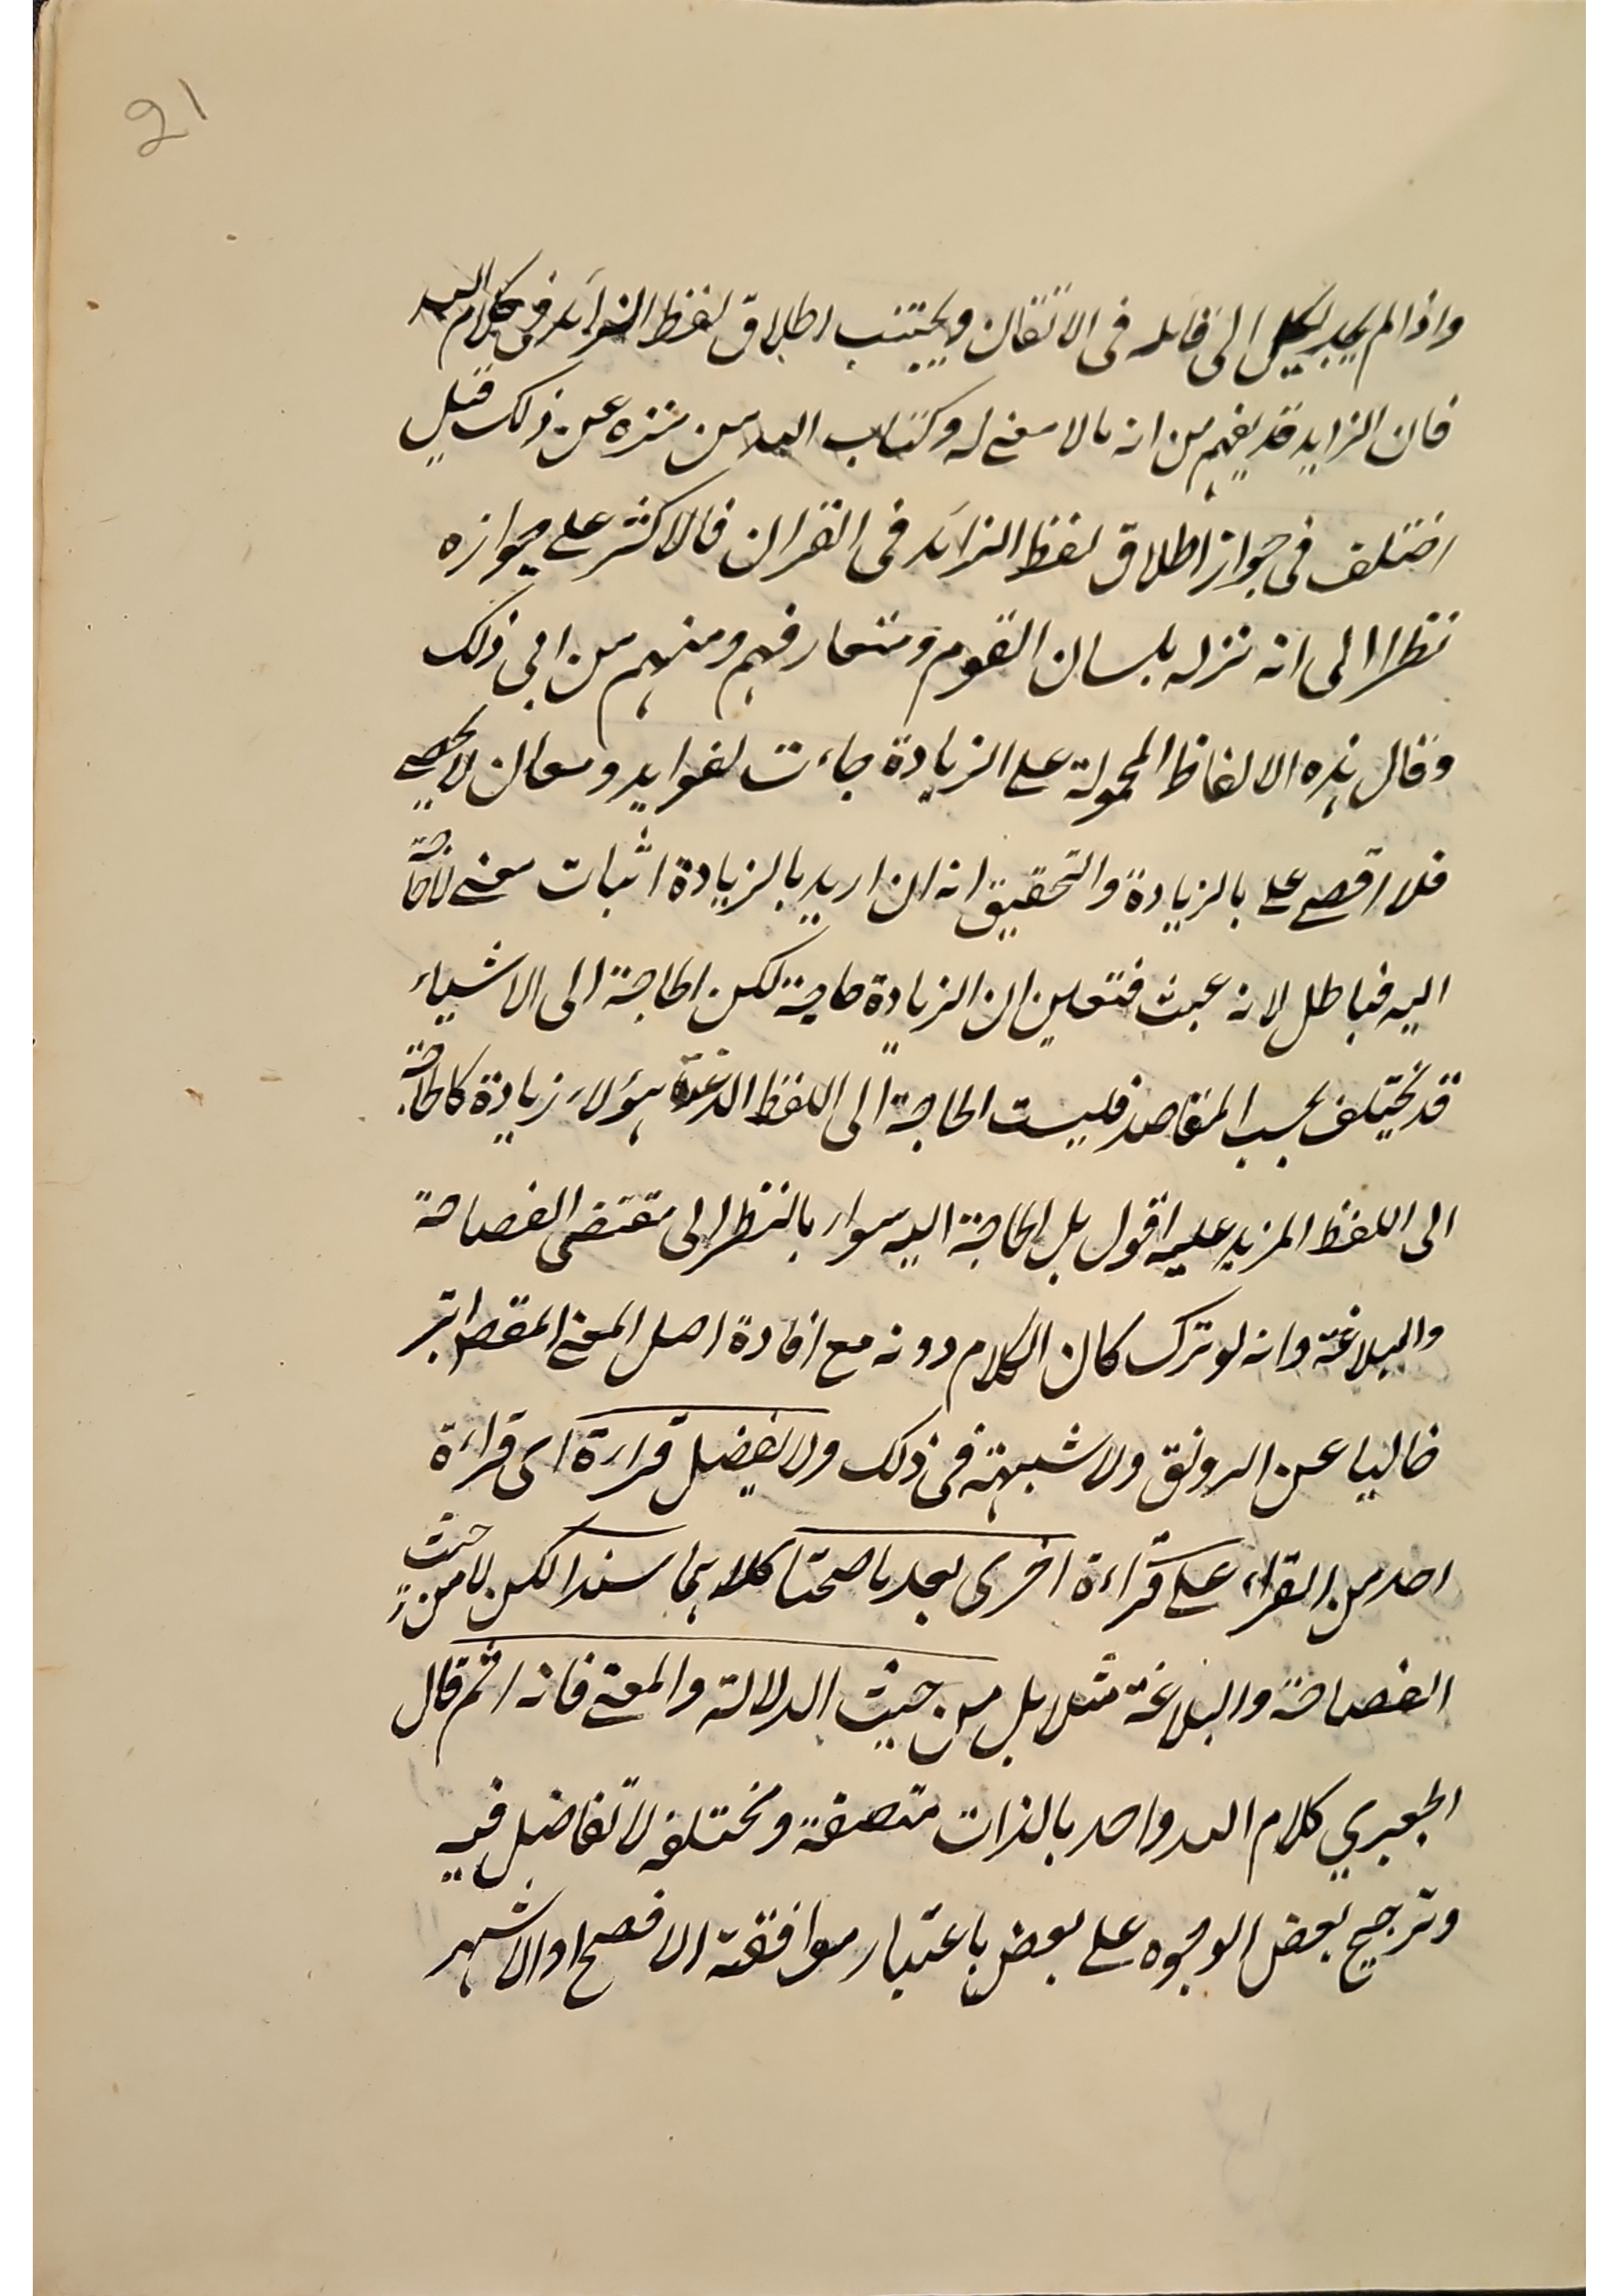 21
واذا لم يجد يكل الى قائله فى الاتقان ويجتنب اطلاق لفظ الزائد فى كلام الله
فان الزايد قد يفهم من انه مالا معنى له وكتاب الله من منزه عن ذلك قيل
اختلف فى جواز اطلاق لفظ الزائد فى القران فالاكثر على جوازه
نظرا الى انه نزله بلسان القوم ومتعارفهم ومنهم من ابى ذلك
وقال هذه الالفاظ المحمولة على الزيادة جاءت لفوايد ومعان لا تحصى
فلا اقصى على بالزيادة والتحقيق انه ان اريد بالزيادة اثبات معنى لا حاجة
اليه فباطل لانه عبث فتعين ان الزيادة حاجة لكن الحاجة الى الاشياء
قد يختلف بحسب المقاصد فليست الحاجة الى اللفظ الذى عده هؤلاء زيادة كالحاجة
الى اللفظ المزيد عليه اقول بل الحاجة اليه سواء بالنظر الى مقتضى الفصاحة
والبلاغة وانه لو ترك كان الكلام دونه مع افادة اصل المعنى المقصود ابتر
خاليا عن الرونق ولا شبهة فى ذلك ولا يفضل قراءة اى قراءة
احد من القراء على قراءة اخرى بعد ما صحتا كلاهما سندا لكن لا من حيث
الفصاحة والبلاغة مثلا بل من حيث الدلالة والمعنى فانه اثم قال
الجعبري كلام الله واحد بالذات متصفة ومختلفه لا تفاضل فيه
وترجيح بعض الوجوه على بعض باعتبار موافقة الافصح او الاشهر